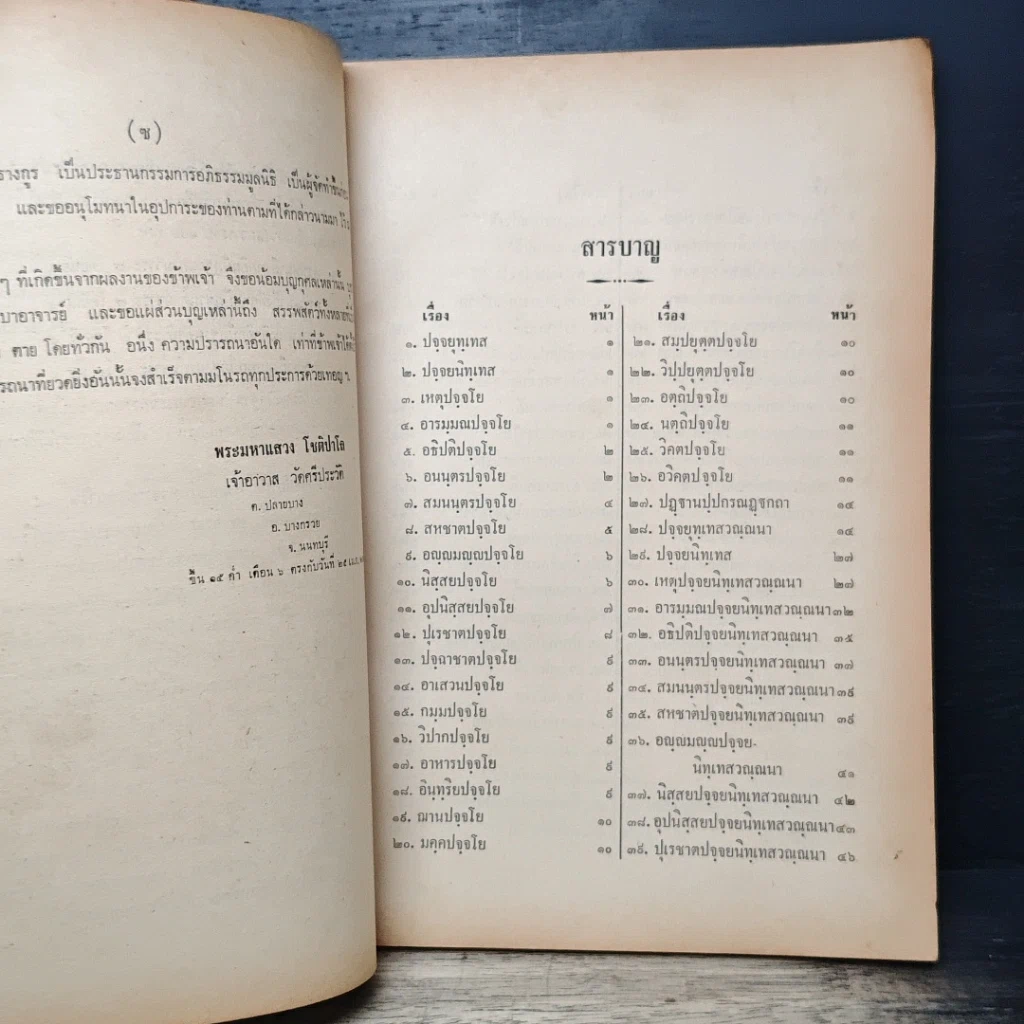 (ซ)
รางกูร เป็นประธานกรรมการอภิธรรมมูลนิธิ เป็นผู้จัดทำขึ้น
และขออนุโมทนาในอุปการะของท่านตามที่ได้กล่าวนามมา ไว้
ๆ ที่เกิดขึ้นจากผลงานของข้าพเจ้า จึงขอน้อมบุญกุศลเหล่านั้น
บาอาจารย์ และขอแผ่ส่วนบุญเหล่านี้ถึง สรรพสัตว์ทั้งหลาย
ตาย โดยทั่วกัน อนึ่ง ความปรารถนาอันใด เท่าที่ข้าพเจ้าได้
รถนาที่ยวดยิ่งอันนั้นจงสำเร็จตามมโนรถทุกประการด้วยเทอญ ฯ
พระมหาแสวง โชติปาโล
เจ้าอาวาส วัดศรีประวัติ
ต. ปลายบาง
อ. บางกรวย
จ. นนทบุรี
ขึ้น ๑๕ ค่ำ เดือน ๖ ตรงกับวันที่ ๒๕
สารบาญ
เรื่อง หน้า
๑. ปจฺจยุทฺเทส ๑
๒. ปจฺจยนิทฺเทส ๑
๓. เหตุปจฺจโย ๑
๔. อารมฺมณปจฺจโย ๑
๕. อธิปติปจฺจโย ๒
๖. อนนฺตรปจฺจโย ๒
๗. สมนนฺตรปจฺจโย ๔
๘. สหชาตปจฺจโย ๕
๙. อญฺญมญฺญปจฺจโย ๖
๑๐. นิสฺสยปจฺจโย ๖
๑๑. อุปนิสฺสยปจฺจโย ๗
๑๒. ปุเรชาตปจฺจโย ๘
๑๓. ปจฺฉาชาตปจฺจโย ๙
๑๔. อาเสวนปจฺจโย ๙
๑๕. กมฺมปจฺจโย ๙
๑๖. วิปากปจฺจโย ๙
๑๗. อาหารปจฺจโย ๙
๑๘. อินฺทฺริยปจฺจโย ๙
๑๙. ฌานปจฺจโย ๑๐
๒๐. มคฺคปจฺจโย ๑๐
เรื่อง หน้า
๒๑. สมฺปยุตฺตปจฺจโย ๑๐
๒๒. วิปฺปยุตฺตปจฺจโย ๑๐
๒๓. อตฺถิปจฺจโย ๑๐
๒๔. นตฺถิปจฺจโย ๑๑
๒๕. วิคตปจฺจโย ๑๑
๒๖. อวิคตปจฺจโย ๑๑
๒๗. ปฏฺฐานปฺปกรณฏฺฐกถา ๑๔
๒๘. ปจฺจยุทฺเทสวณฺณนา ๑๔
๒๙. ปจฺจยนิทฺเทส ๒๗
๓๐. เหตุปจฺจยนิทฺเทสวณฺณนา ๒๗
๓๑. อารมฺมณปจฺจยนิทฺเทสวณฺณนา ๓๒
๓๒. อธิปติปจฺจยนิทฺเทสวณฺณนา ๓๕
๓๓. อนนฺตรปจฺจยนิทฺเทสวณฺณนา ๓๗
๓๔. สมนนฺตรปจฺจยนิทฺเทสวณฺณนา ๓๙
๓๕. สหชาตปจฺจยนิทฺเทสวณฺณนา ๓๙
๓๖. อญฺญมญฺญปจฺจย-
นิทฺเทสวณฺณนา ๔๑
๓๗. นิสฺสยปจฺจยนิทฺเทสวณฺณนา ๔๒
๓๘. อุปนิสฺสยปจฺจยนิทฺเทสวณฺณนา ๔๓
๓๙. ปุเรชาตปจฺจยนิทฺเทสวณฺณนา ๔๖